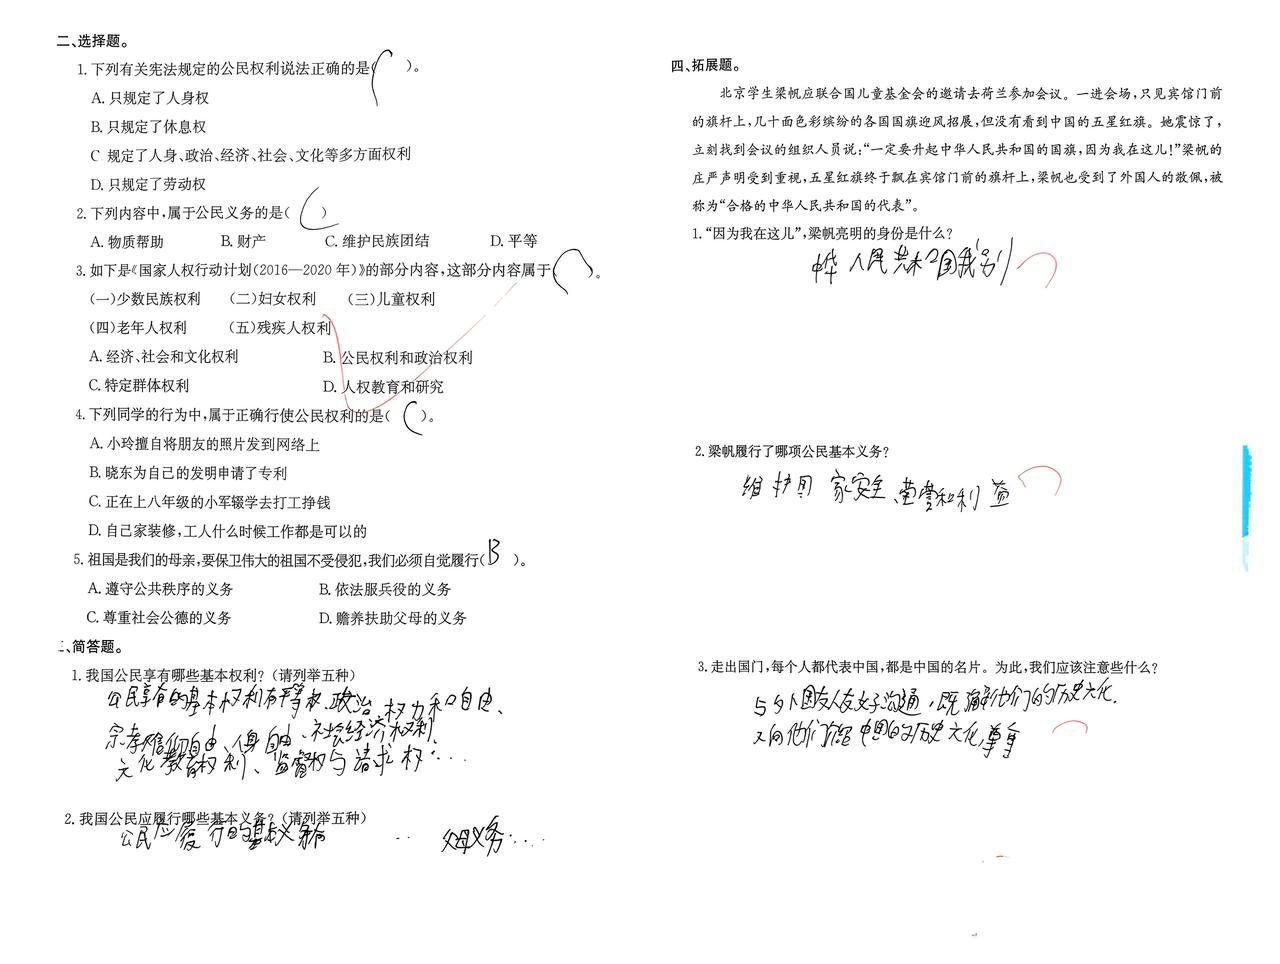 二、选择题。
1. 下列有关宪法规定的公民权利说法正确的是(C)。
A. 只规定了人身权
B. 只规定了休息权
C. 规定了人身、政治、经济、社会、文化等多方面权利
D. 只规定了劳动权
2. 下列内容中,属于公民义务的是(C)
A. 物质帮助 B. 财产 C. 维护民族团结 D. 平等
3. 如下是《国家人权行动计划(2016—2020年)》的部分内容,这部分内容属于(C)。
(一)少数民族权利 (二)妇女权利 (三)儿童权利
(四)老年人权利 (五)残疾人权利
A. 经济、社会和文化权利 B. 公民权利和政治权利
C. 特定群体权利 D. 人权教育和研究
4. 下列同学的行为中,属于正确行使公民权利的是(C)。
A. 小玲擅自将朋友的照片发到网络上
B. 晓东为自己的发明申请了专利
C. 正在上八年级的小军辍学去打工挣钱
D. 自己家装修,工人什么时候工作都是可以的
5. 祖国是我们的母亲,要保卫伟大的祖国不受侵犯,我们必须自觉履行(B)。
A. 遵守公共秩序的义务 B. 依法服兵役的义务
C. 尊重社会公德的义务 D. 赡养扶助父母的义务
三、简答题。
1. 我国公民享有哪些基本权利?(请列举五种)
公民享有的基本权利有平等权、政治权力和自由、
宗教信仰自由、人身自由、社会经济权利、
文化教育权利、监督权与请求权....
2. 我国公民应履行哪些基本义务?(请列举五种)
公民应履行的基本义务有 父母义务....
四、拓展题。
北京学生梁帆应联合国儿童基金会的邀请去荷兰参加会议。一进会场,只见宾馆门前
的旗杆上,几十面色彩缤纷的各国国旗迎风招展,但没有看到中国的五星红旗。她震惊了,
立刻找到会议的组织人员说:“一定要升起中华人民共和国的国旗,因为我在这儿!”梁帆的
庄严声明受到重视,五星红旗终于飘在宾馆门前的旗杆上,梁帆也受到了外国人的敬佩,被
称为“合格的中华人民共和国的代表”。
1. “因为我在这儿”,梁帆亮明的身份是什么?
中华人民共和国
2. 梁帆履行了哪项公民基本义务?
维护国家安全、荣誉和利益
3. 走出国门,每个人都代表中国,都是中国的名片。为此,我们应该注意些什么?
与外国友人友好沟通,既了解他们的历史文化,
又向他们 中国的历史文化,尊重